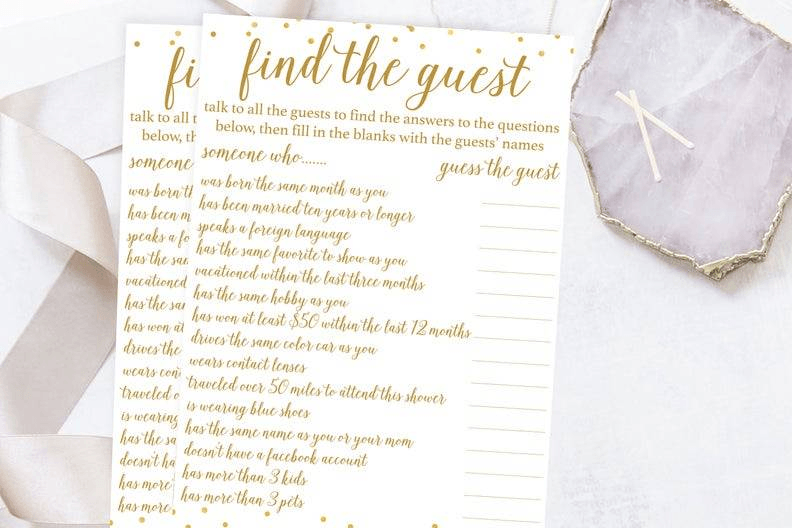 find the guest
talk to all the guests to find the answers to the questions
below, then fill in the blanks with the guests' names
someone who.......
guess the guest
was born the same month as you
has been married ten years or longer
speaks a foreign language
has the same favorite to show as you
vacationed within the last three months
has the same hobby as you
has won at least $50 within the last 12 months
drives the same color car as you
wears contact lenses
traveled over 50 miles to attend this shower
is wearing blue shoes
has the same name as you or your mom
doesn't have a facebook account
has more than 3 kids
has more than 3 pets
fi
talk to all t
below, th
someone
was born th
has been m
speaks a fo
has the sa
vacationed
has the sa
has won at
drives the
wears con
traveled o
is wearing
has the sa
doesn't h
has more
has more